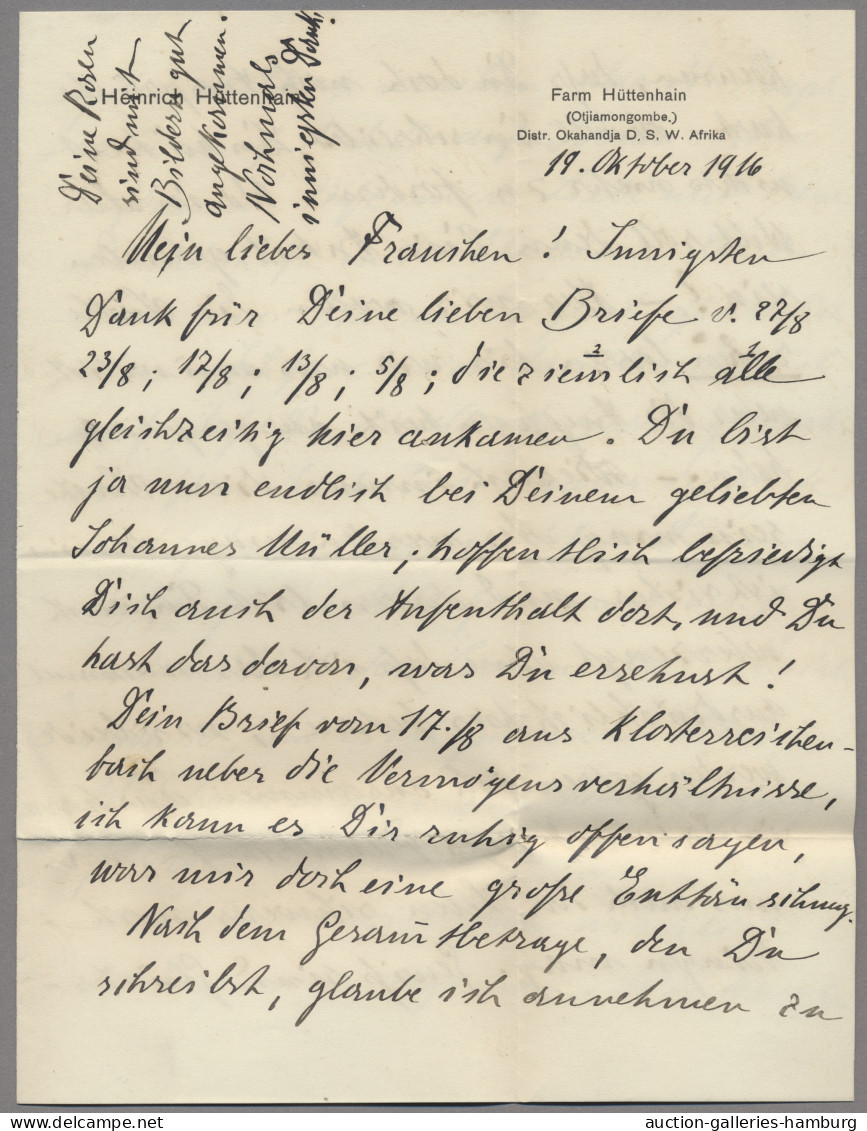 Deine Rosen
sind mit
Bildern gut
angekommen.
Nochmals
innigsten Dank.
Heinrich Hüttenhain
Farm Hüttenhain
(Otjiamongombe.)
Distr. Okahandja D. S. W. Afrika
19. Oktober 1916
Mein liebes Frauchen! Innigsten
Dank für Deine lieben Briefe v. 27/8
23/8; 17/8; 13/8; 5/8; die zieml̅ich alle
gleichzeitig hier ankamen. Du bist
ja nun endlich bei Deinem geliebten
Johannes Müller, hoffentlich befriedigt
Dich auch der Aufenthalt dort, und Du
hast das davon, was Du ersehnst!
Dein Brief vom 17./8 aus Klosterreichen-
bach ueber die Vermögensverhältnisse,
ich kann es Dir ruhig offen sagen,
war mir doch eine große Enttäuschung.
Nach dem Gesam̅tbetrage, den Du
schreibst, glaube ich annehmen zu
auction-galleries-hamburg